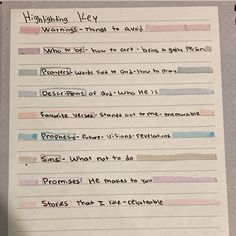 Highlighting Key
Warnings - things to avoid
Who to be - how to act - being a godly person
Prayers - words said to God - how to pray
Descriptions of God - Who He is
Favorite verses - Stands out to me - memorable
Prophesy - future - visions - revelations
Sins - What not to do
Promises He makes to you
Stories That I like - relateable